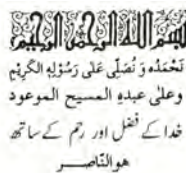 بسم الله الرحمن الرحيم
نَحْمَدُهٗ وَ نُصَلِّی عَلٰی رَسُوْلِهِ الْكَرِیْمِ
وعلیٰ عبدهِ المسیح الموعود
خدا کے فضل اور رحم کے ساتھ
هو النّاصر